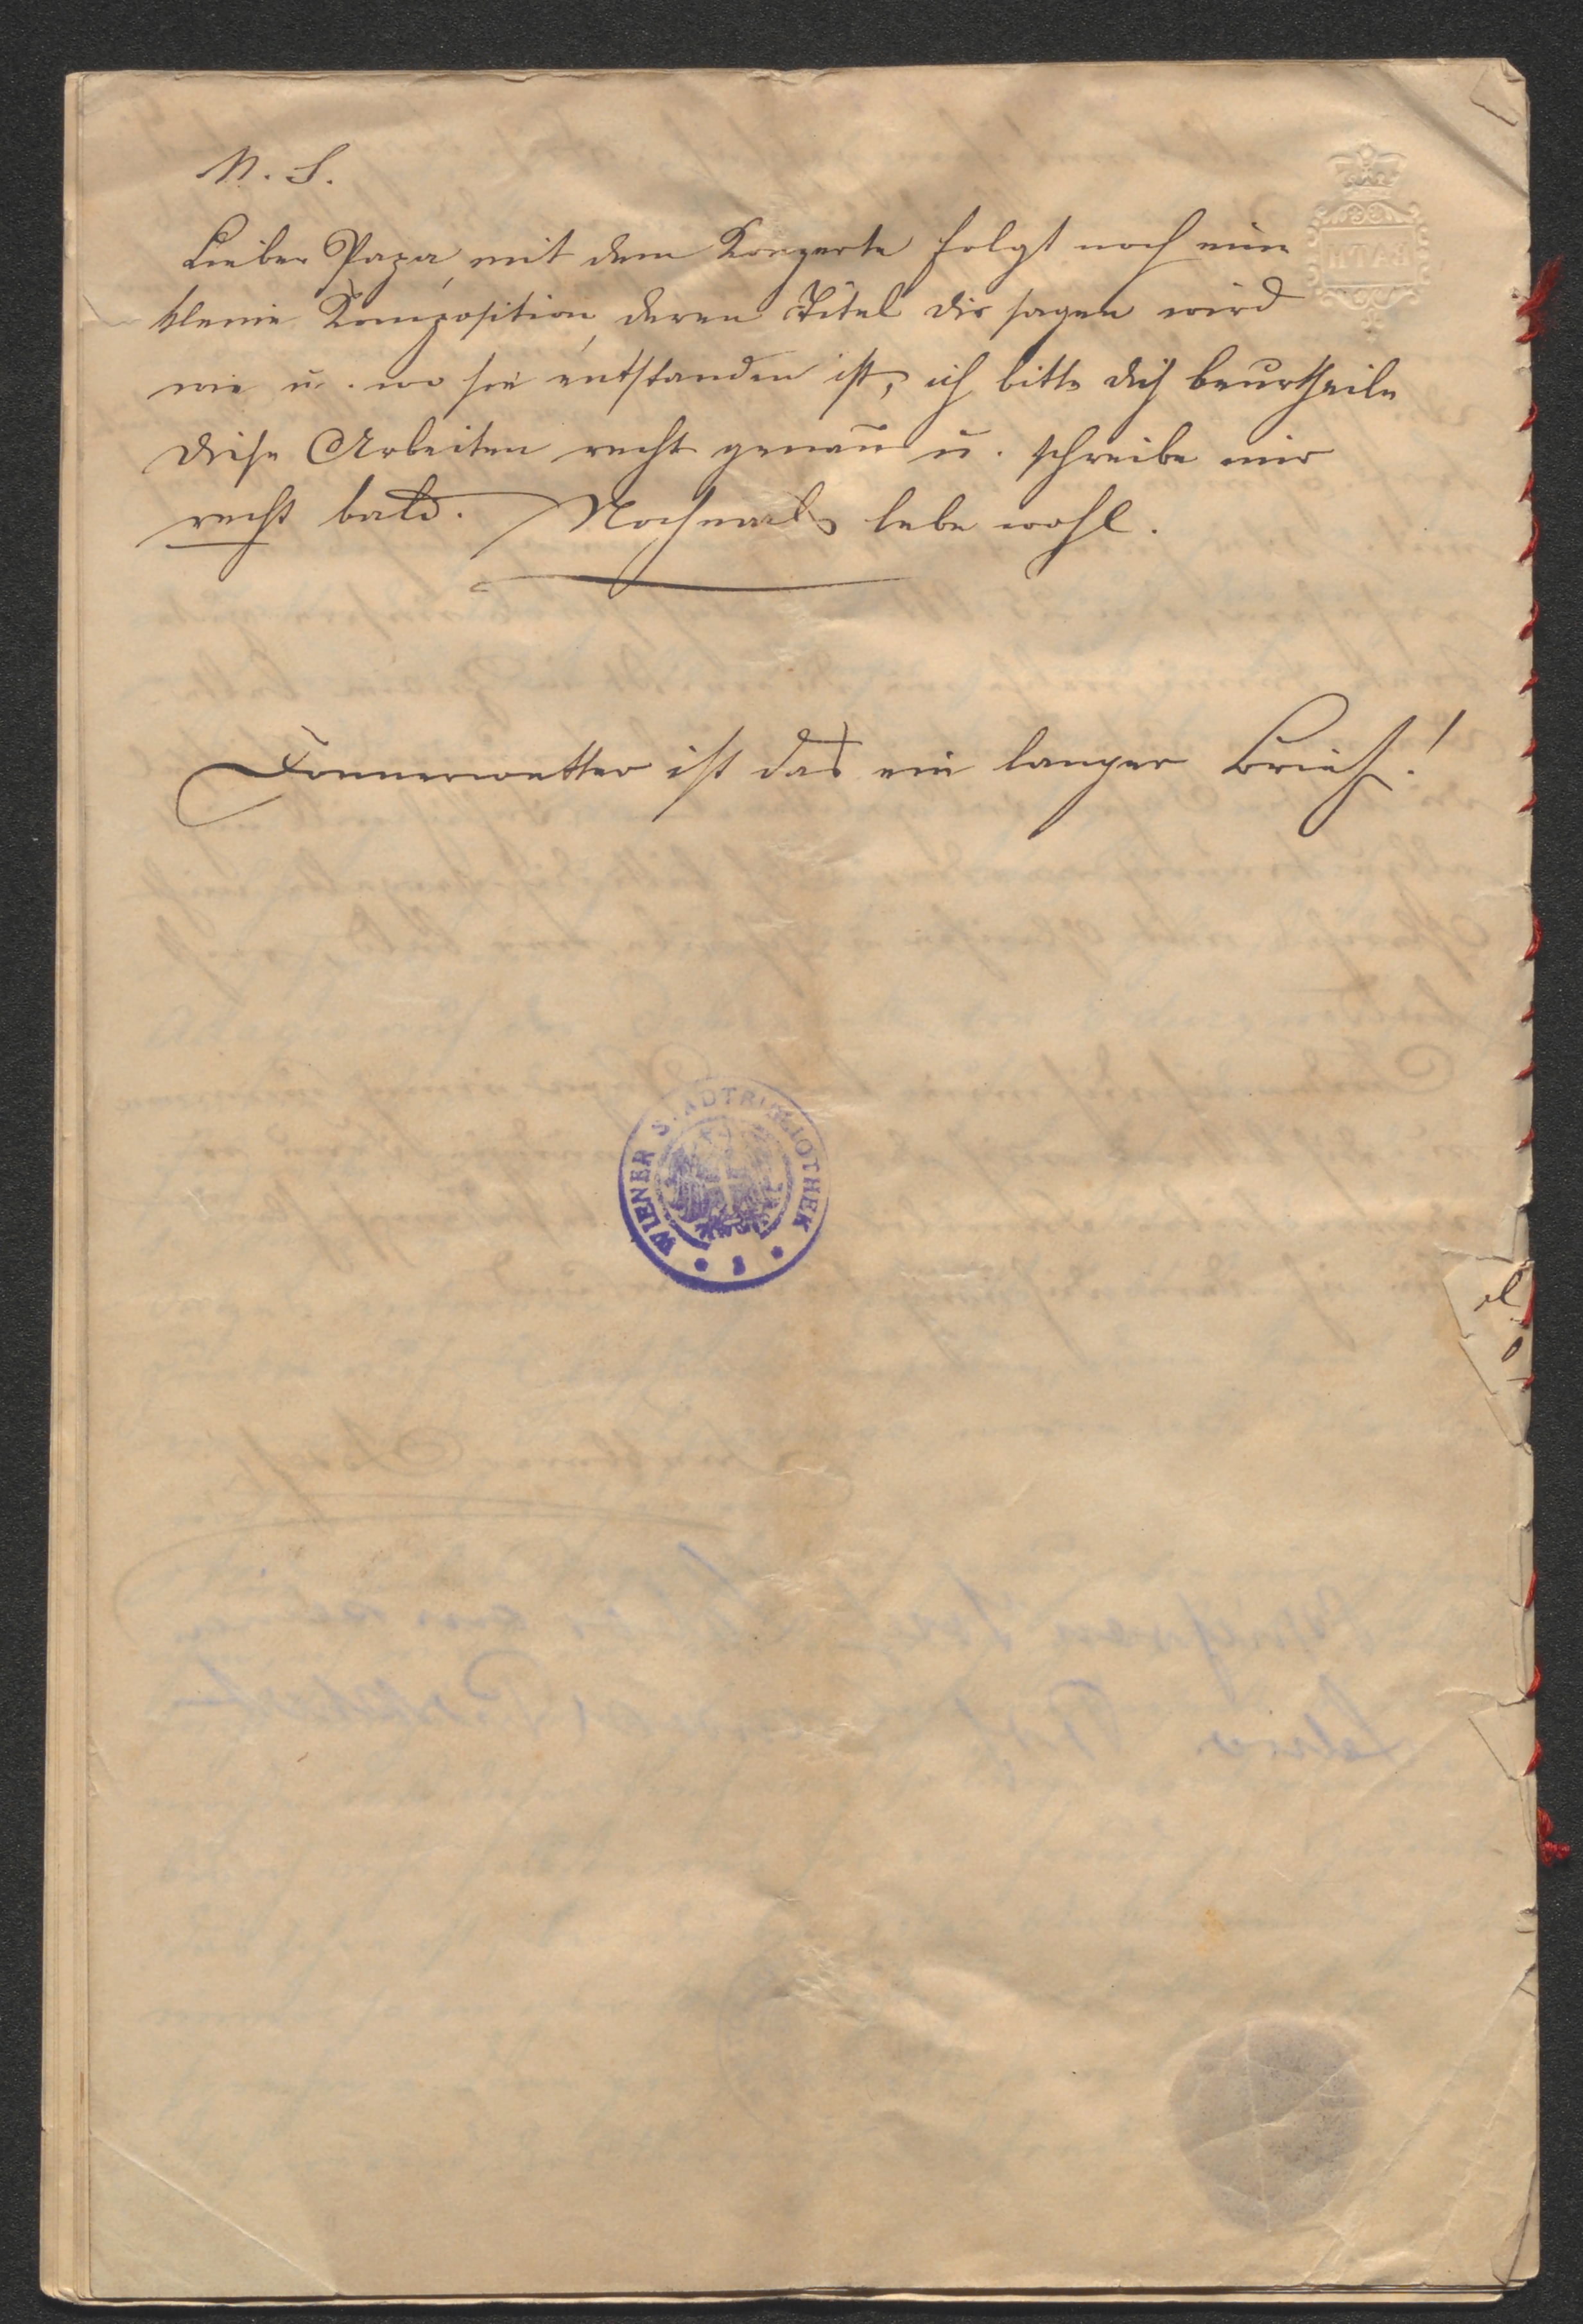 N. S.
Lieber Papa, mit dem Konzerte folgt noch eine
kleine Komposition, deren Titel dir sagen wird
wie u. wo sie entstanden ist, ich bitte dich beurtheile
diese Arbeiten recht genau u. schreibe mir
recht bald. Nochmals lebe wohl.
Donnerwetter ist das ein langer Brief!
BATH
WIENER STADTBIBLIOTHEK